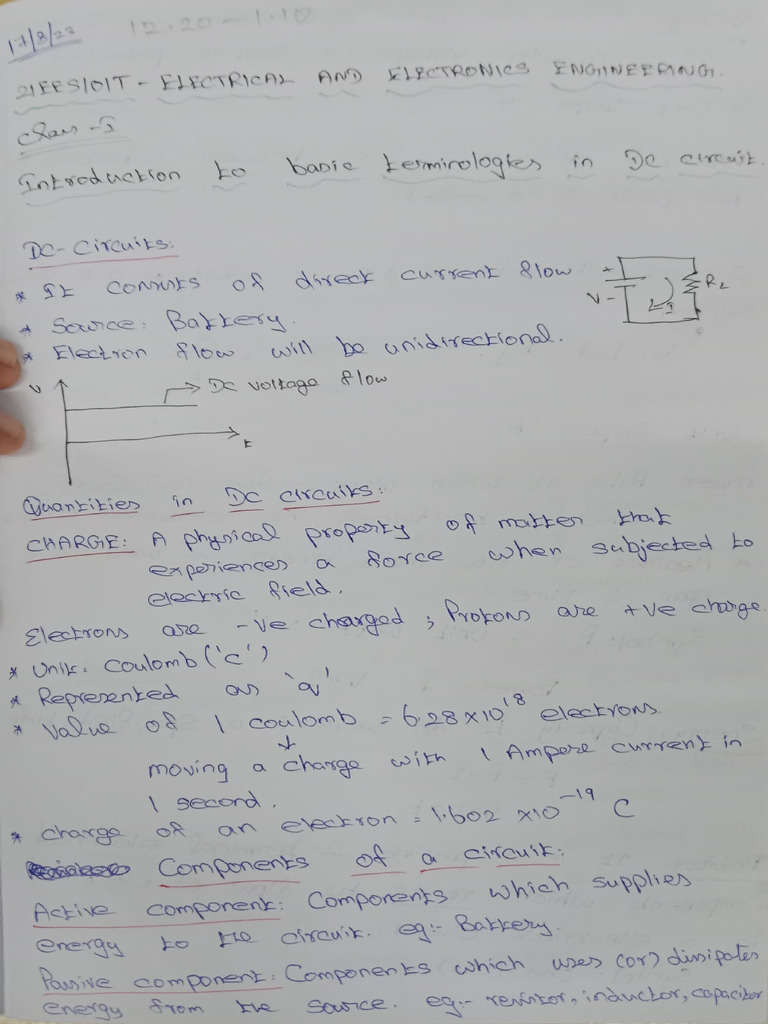 17/8/23 12.20 - 1.10
21EES101T - ELECTRICAL AND ELECTRONICS ENGINEERING.
Class - I
Introduction to basic terminologies in DC circuit.
DC-Circuits:
* It consists of direct current flow
* Source: Battery.
* Electron flow will be unidirectional.
+ V - I RL
V DC voltage flow
t
Quantities in DC circuits:
CHARGE: A physical property of matter that
experiences a force when subjected to
electric field.
Electrons are -ve charged ; Protons are +ve charge.
* Unit: Coulomb ('c')
* Represented as 'q'
* Value of 1 coulomb = 6.28 × 10^18 electrons.
↓
moving a charge with 1 Ampere current in
1 second.
* charge of an electron = 1.602 × 10^-19 C
Components of a circuit:
Active component: Components which supplies
energy to the circuit. eg:- Battery.
Passive component: Components which uses (or) dissipates
energy from the source. eg:- resistor, inductor, capacitor